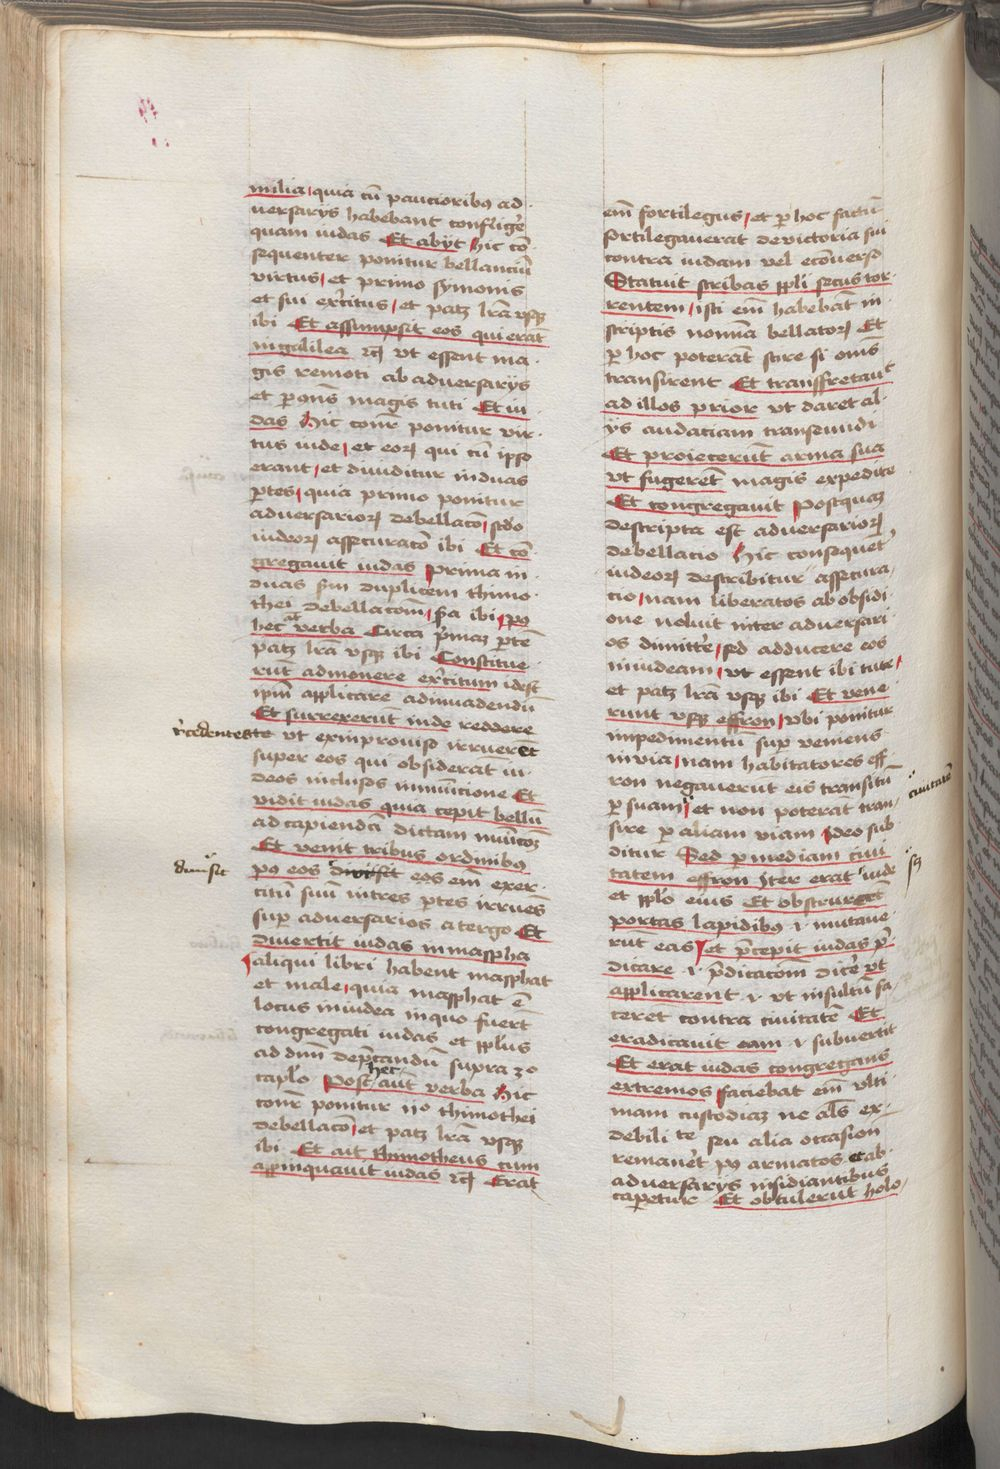 milia quia cū paucioribꝰ ad
uersarijs habebant confligēr
quam iudas Et abijt Hic cō
sequenter ponitur bellanciū
virtus et primo symonis
et sui exercitus et patꝫ lr̄a vsqꝫ
ibi Et assumpsit eos qui erāt
in galilea ⁊cꝫ vt essent ma
gis remoti ab aduersarijs
et ꝑ ꝯn̄s magis tuti Et iu
das Hic ꝯnr̄ ponitur vir
tus iude et eoꝝ qui cū ipso
erant et diuiditur in duas
ꝑtes quia primo ponitur
aduersarioꝝ debellacō scd̄o
iudeoꝝ assecuracō ibi Et cō
gregauit iudas Prima in
duas scd̄m duplicem thimo
thei debellacōm sc̄da ibi pꝰ
hec at̄ verba Circa p̄maꝫ ꝑtē
patꝫ lr̄a vsqꝫ ibi Constitue
rūt admonere exercitum idest
ipm̄ applicare ad inuadendū
Et surrexerūt inde reddere
vt ex improuiso irruerēt
super eos qui obsiderāt iu
deos inclusos in municione Et
vidit iudas quia cepit bellū
ad capiendā dictam municōꝫ
Et venit tribus ordinibꝰ
pꝰ eos diuisit eos em̄ exer
citū suū in tres ꝑtes irruēs
suꝑ aduersarios a tergo Et
diuertit iudas in maspha
aliqui libri habent masphat
et male quia masphat ē
locus in iudea in quo fuerūt
congregati iudas et ppl̄us
ad dn̄m dep̄candū supra 3º
capl̄o Post hec aūt verba Hic
ꝯnr̄ ponitur ijº thimothei
debellacō et patꝫ lr̄a vsqꝫ
ibi Et ait thimotheus cum
appinquauit iudas ⁊cꝫ Erat
diuisit
em̄ sortilegus et ꝑ hoc factū
sortilegauerat de victoria sui
contra iudam vel ecōuerso
Statuit scribas ppl̄i secus tor
rentem isti em̄ habebāt in
scriptis nomīa bellatoꝝ Et
ꝑ hoc poterāt scire si om̄s
transirent Et transfretauit
ad illos prior vt daret al
ijs audaciam transeundi
Et proiecerūt arma sua
vt fugerēt magis expedite
Et congregauit Postquaꝫ
descripta est aduersarioꝝ
debellacio Hic consequent̄
iudeoꝝ describitur assecura
cio nam liberatos ab obsidi
one noluit inter aduersari
os dimittēr sed adducere eos
in iudeam vt essent ibi tute
et patꝫ lr̄a vsqꝫ ibi Et vene
runt vsqꝫ effron vbi ponitur
impedimentū suꝑ veniens
in via nam habitatores eff
ron negauerūt eis transitū
ꝑ suam et non poterāt tran
sire ꝑ aliam viam Ideo sub
ditur Sed ꝑ mediam ciui
tatem effron iter erat iude
et ppl̄o eius Et obstruxerūt
portas lapidibꝰ .i. mutaue
rūt eas et p̄cepit iudas p̄
dicare .i. p̄dicacōm dicēr vt
applicarent .i. vt insultū fa
cerēt contra ciuitatē Et
eradicauit eam .i. subuertit
Et erat iudas congregans
extremos faciebat em̄ vlti
mam custodiaꝫ ne al̄s ex
debili te seu alia occasion
remanēt pꝰ armatos et ab
aduersarijs insidiantibus
caperetur Et obtulerūt holo
ciuitatem